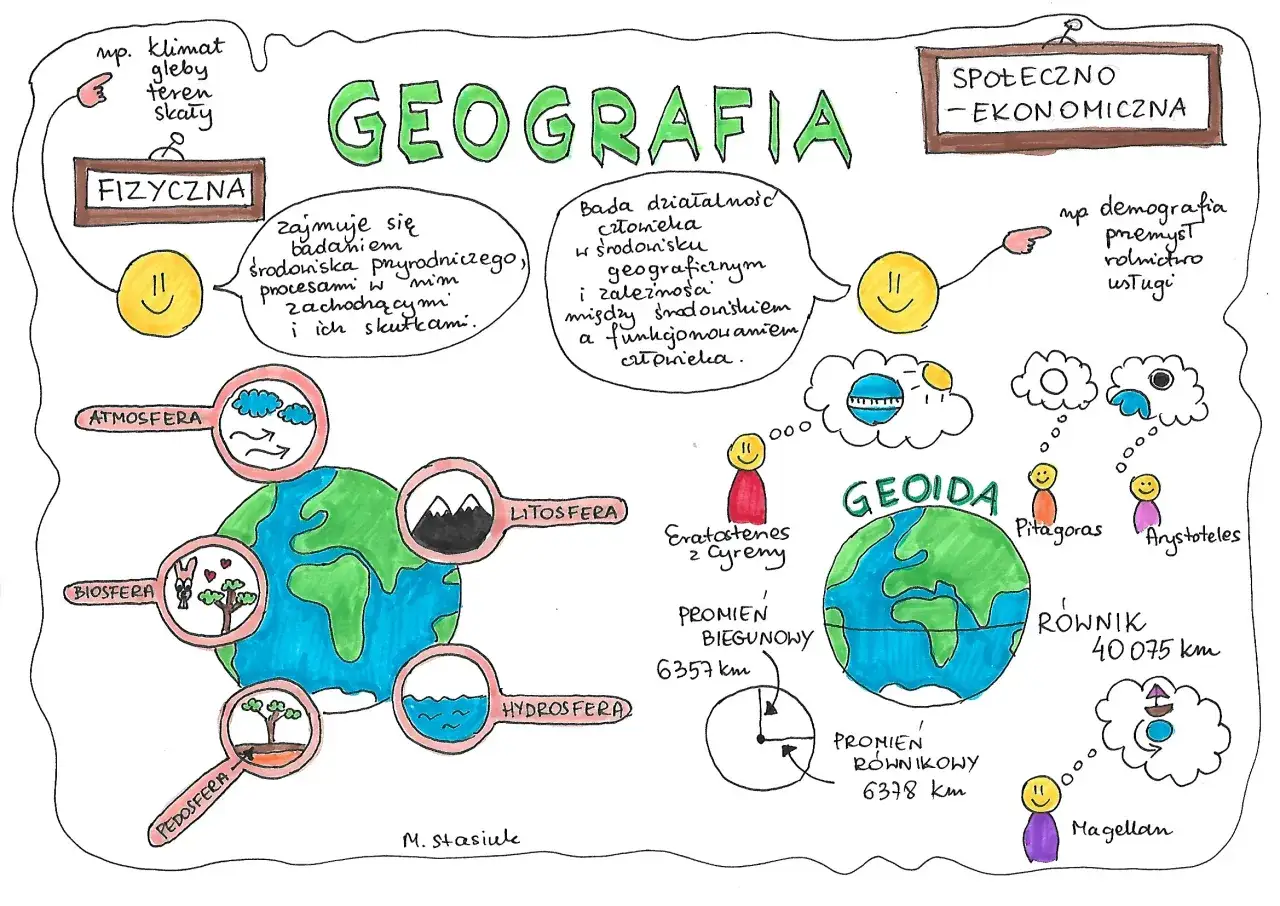 GEOGRAFIA
np. klimat
gleby
teren
skały
FIZYCZNA
zajmuje się
badaniem
środowiska przyrodniczego,
procesami w nim
zachodzącymi
i ich skutkami.
SPOŁECZNO
- EKONOMICZNA
Bada działalność
człowieka
w środowisku
geograficznym
i zależności
między środowiskiem
a funkcjonowaniem
człowieka.
np demografia
przemysł
rolnictwo
usługi
ATMOSFERA
LITOSFERA
BIOSFERA
HYDROSFERA
PEDOSFERA
Eratostenes
z Cyreny
GEOIDA
Pitagoras
Arystoteles
PROMIEŃ
BIEGUNOWY
6357 km
RÓWNIK
40 075 km
PROMIEŃ
RÓWNIKOWY
6378 km
Magellan
M. Stasiuk